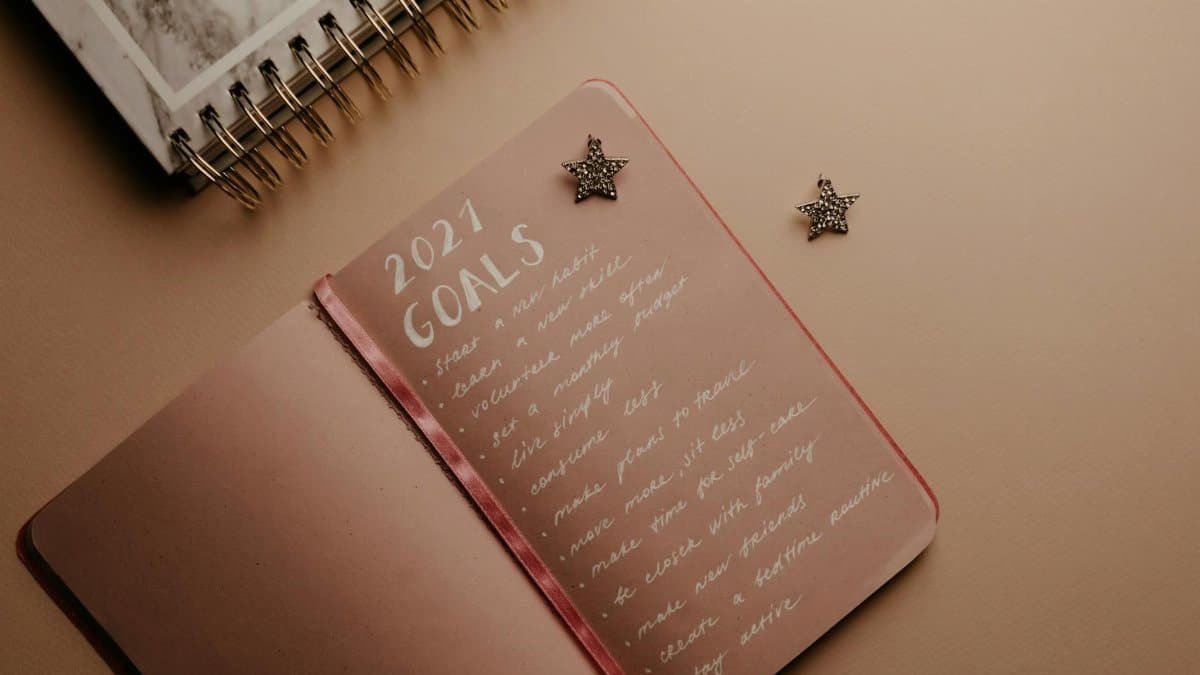 2021
GOALS
• start a new habit
• learn a new skill
• volunteer more often
• set a monthly budget
• live simply
• consume less
• make plans to travel
• move more, sit less
• make time for self-care
• be closer with family
• make new friends
• create a bedtime routine
active